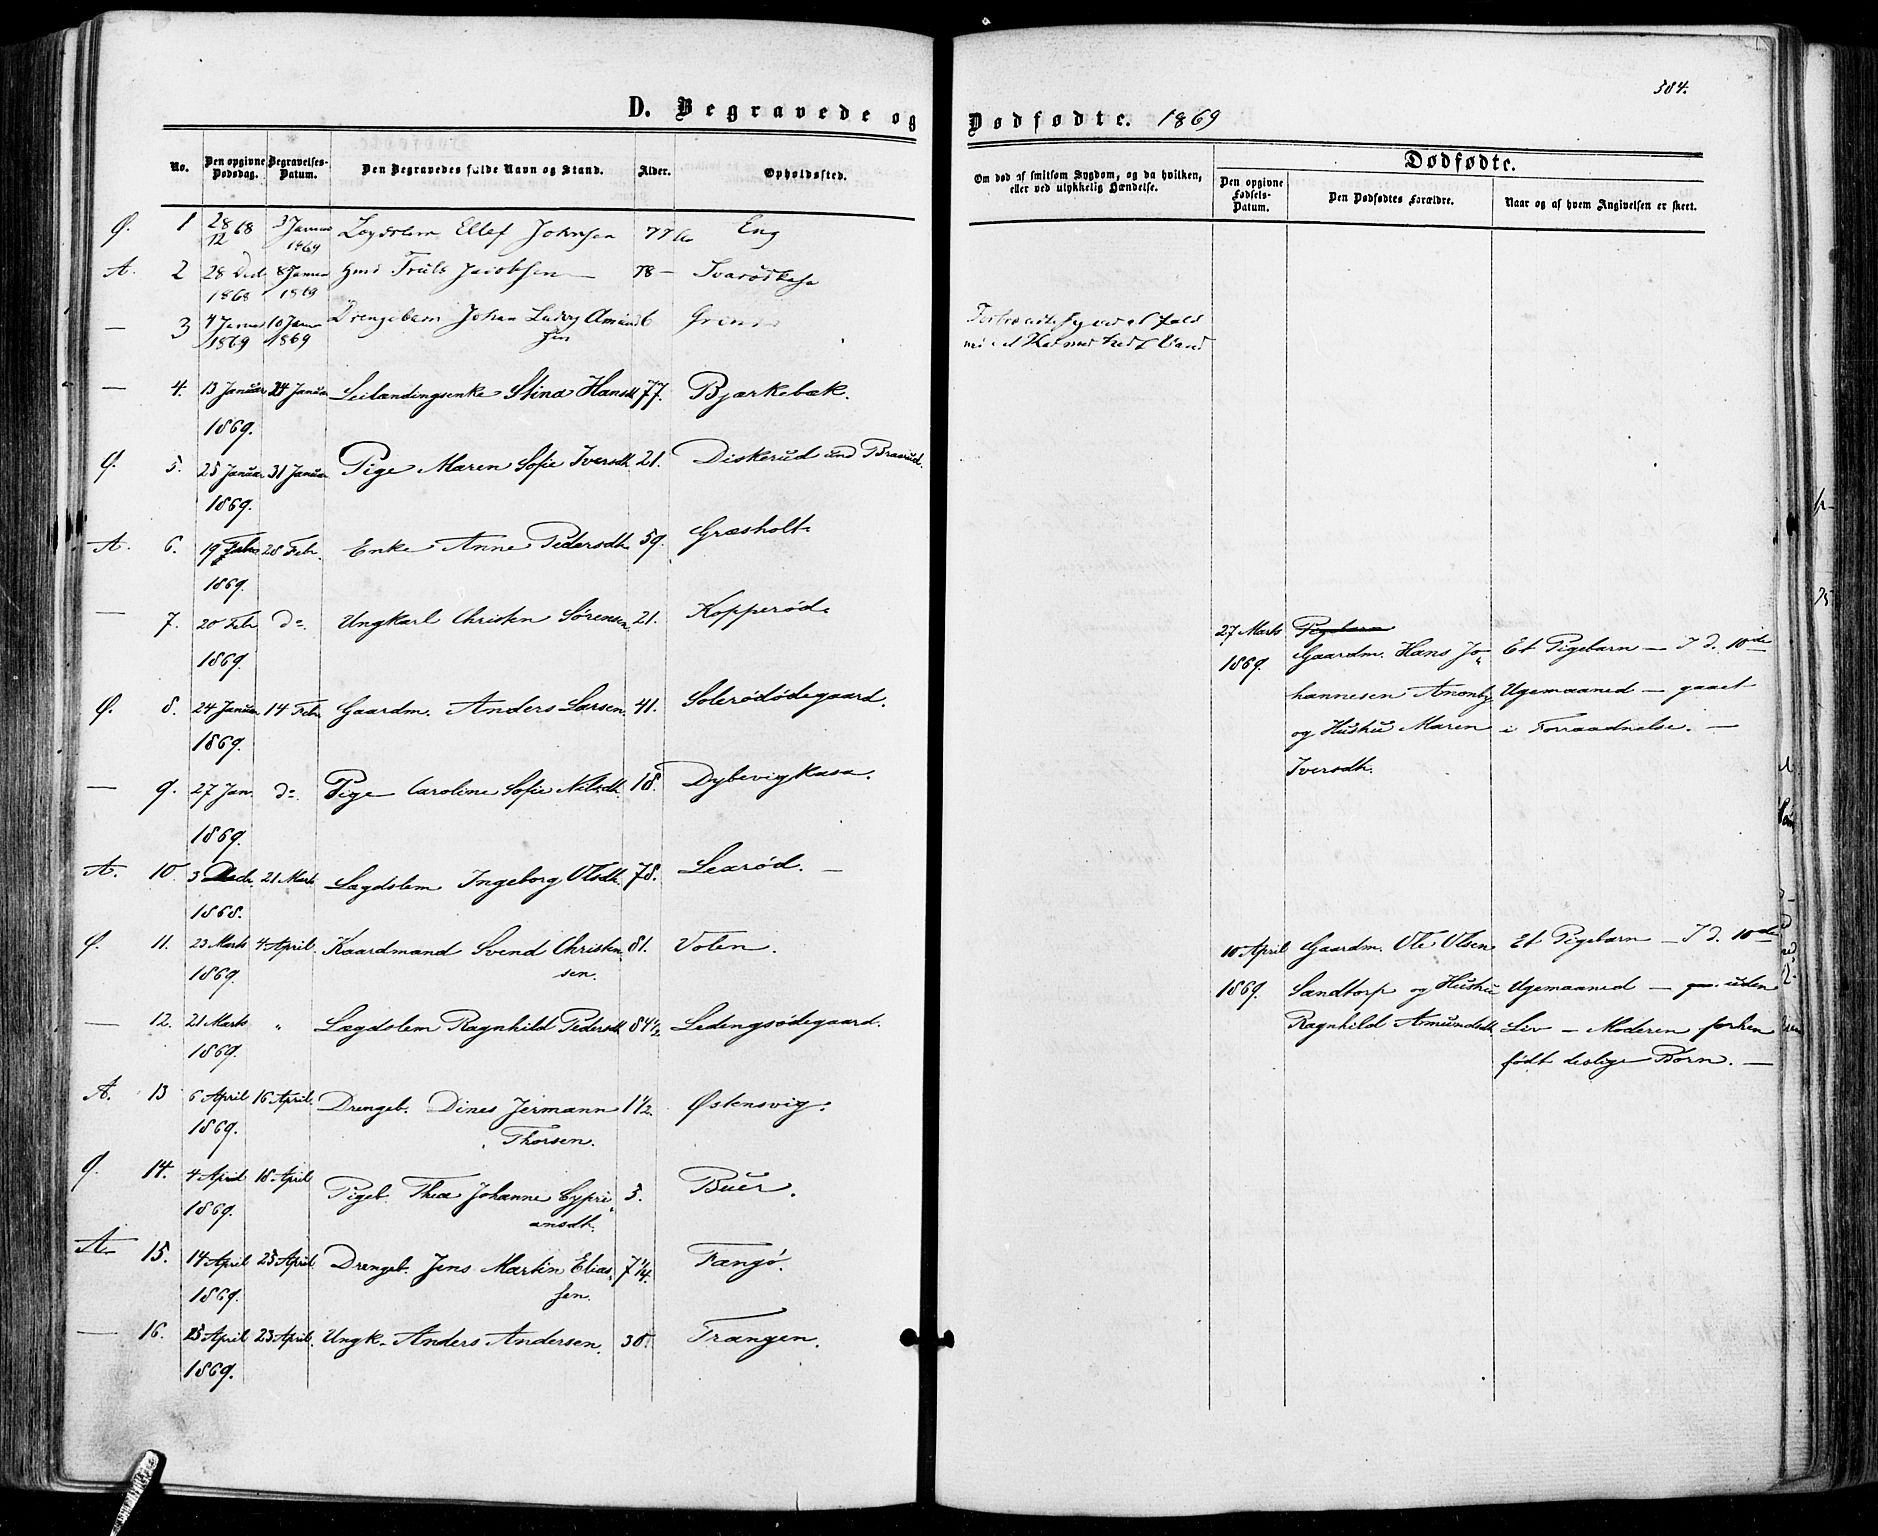 384.
D. Begravede og Dødfødte. 1869
No.
Den opgivne Dødsdag.
Begravelses-Datum.
Den Begravedes fulde Navn og Stand.
Alder.
Opholdssted.
Om død af smitsom Sygdom, og da hvilken, eller ved ulykkelig Hændelse.
Dødfødte.
Den opgivne Fødsels-Datum.
Den Dødfødtes Forældre.
Naar og af hvem Angivelsen er skeet.
Ø. 1 28/12 68 3 Januar 1869 Lægdslem Ellef Johnsen 77 Eng
A. 2 28 Decb 1868 8 Januar 1869 Gmd Truls Jacobsen 78 –
— 3 4 Januar 1869 10 Janu 1869 Drengebarn Johan Ludvig Amund
sen 6
— 4. 13 Januar 24 Januar Seilændingsenke Stina Hansd. 77. Bjærkebæk.
1869.
Ø. 5. 25 Januar 31 Januar Pige Maren Sofie Iversdt. 21. Diskerud und Braarud.
1869.
A. 6. 19 Febr 28 Febr. Enke Anne Pedersdt. 59. Græsholt.
1869.
— 7. 20 Febr do. Ungkarl Christen Sørensen 21. Kopperød.
1869.
Ø. 8. 24 Januar 14 Febr Gaardm. Anders Larsen. 41. Solerødødegaard.
1869.
— 9. 27 Jan. do. Pige Caroline Sofie Nilsdt. 18. Dybevigkasa.
1869.
A. 10. 3 Decb. 21 Marts Lægdslem Ingeborg Olsdt. 78. Learød. —
1868.
Ø. 11. 23 Marts 4 April. Kaardmand Svend Christen 81. Volen.
1869. sen.
— 12. 21 Marts " Lægdslem Ragnhild Pedersdt. 84½ Ledengsødegaard.
1869.
A. 13 6 April 16 April. Drengeb. Dines Jermann 1½. Østensvig.
1869. Thorsen.
Ø. 14. 4 April 18 April Pigeb. Thea Johanne Cypri„ 5. Buer.
1869. ansdt.
A. 15. 14 April 25 April Drengeb. Jens Martin Elias„ 7¼. Fangø.
1869. sen.
— 16. 25 April 23 April. Ungk. Anders Andersen. 30. Trangen.
1869.
27 Marts Pigebarn
1869. Gaardm. Hans Jo„ Et Pigebarn — I d. 10de
hannesen Anonby Ugemaaned — gaaet
og Hustru Maren i Forraadnelse. —
Iversdt.
10 April Gaardm. Ole Olsen Et Pigebarn — I d. 10de
1869. Sandtorp og Hustru Ugemaaned — uden
Ragnhild Asmundsdt. Liv — Moderen forhen
født deslige Børn. —